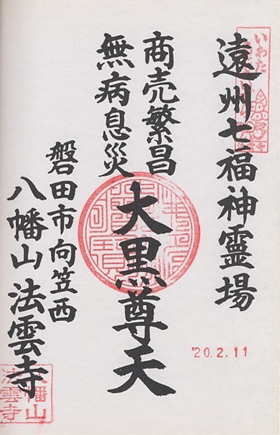 遠州七福神霊場
商売繁昌
無病息災
大黒尊天
磐田市向笠西
八幡山法雲寺
'20.2.11
いわた
八幡山
法雲寺